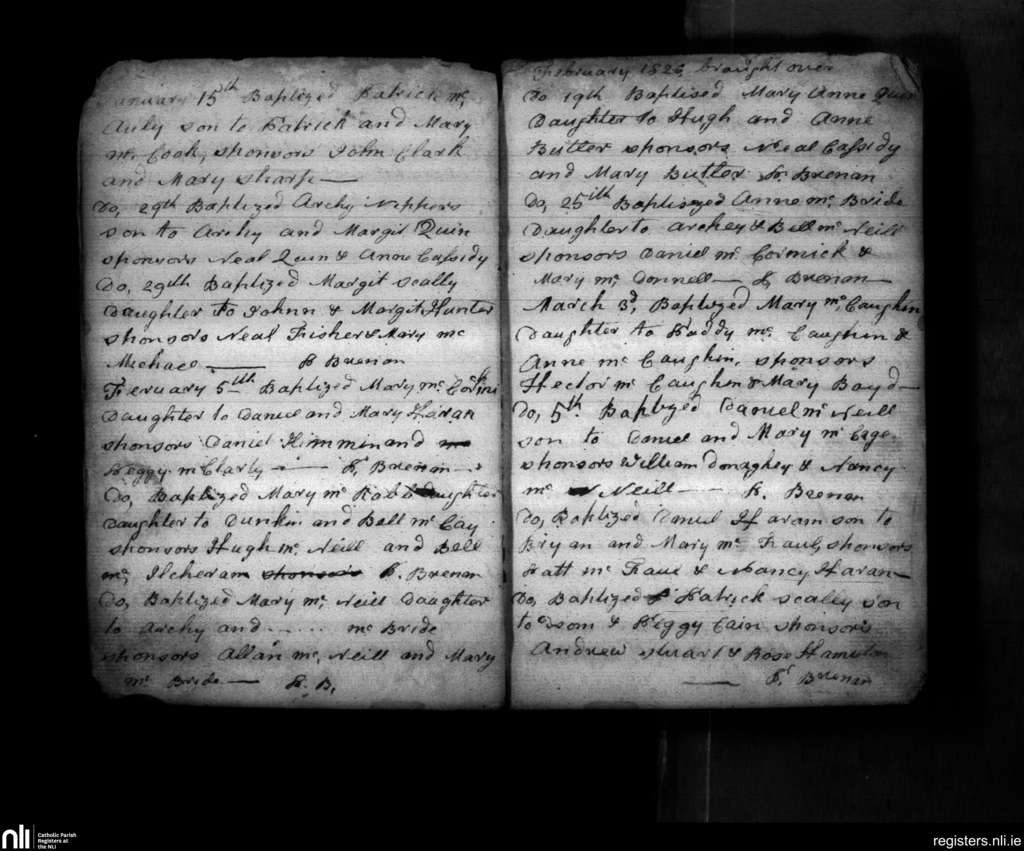 January 15th Baptized Patrick Mc,
Auly son to Patrick and Mary
Mc Cook, sponsors John Clark
and Mary Sharp —
Do, 29th Baptized Archy Neppers
son to Archy and Margit Quin
sponsors Neal Quin & Anow Cassidy
Do, 29th Baptized Margit Scally
Daughter to Johnn & Margit Hunter
sponsors Neal Fisher & Mary Mc
Michael — P Brenan
Feruary 5th Baptized Mary Mc
Daughter to Daniel and Mary Haran
sponsors Daniel Himmin and
Peggy Mc Clarty — P. Brenan
Do, Baptized Mary Mc Robb
Daughter to Dunkin and Bell Mc Cay
sponsors Hugh Mc, Neill and Bell
Mc, Ilcheram sponsors P. Brenan
Do, Baptized Mary Mc, Neill Daughter
to Archy and ..... Mc Bride
sponsors Allan Mc, Neill and Mary
Mc Bride — P. B.
February 1826 braught over
Do 19th Baptised Mary Anne Quin
Daughter to Hugh and Anne
Butler sponsors Neal Cassidy
and Mary Butler Pr Brenan
Do, 25th Baptiszed Anne Mc, Bride
Daughter to Archey & Bell Mc Neill
sponsors Daniel Mc Cormick &
Mary Mc Donnell — P Brenan —
March 3d, Baptized Mary Mc, Caughin
Daughter to Paddy Mc Caughin &
Anne Mc Caughin, sponsors
Hector Mc Caughin & Mary Boyd —
Do, 5th Baptized Daniel Mc Neill
son to Daniel and Mary Mc Cage
sponsors William Donaghey & Nancy
Mc Neill — P. Brenan
Do, Baptized Daniel Haram son to
Bryan and Mary Mc Faul, sponsors
Patt Mc Faul & Nancy Haran —
Do, Baptized Patrick Scally son
to & Peggy Cain sponsors
Andrew Stuart & Rose Hamilton
— Pr Brenan
nli
Catholic Parish
Registers at
the NLI
registers.nli.ie